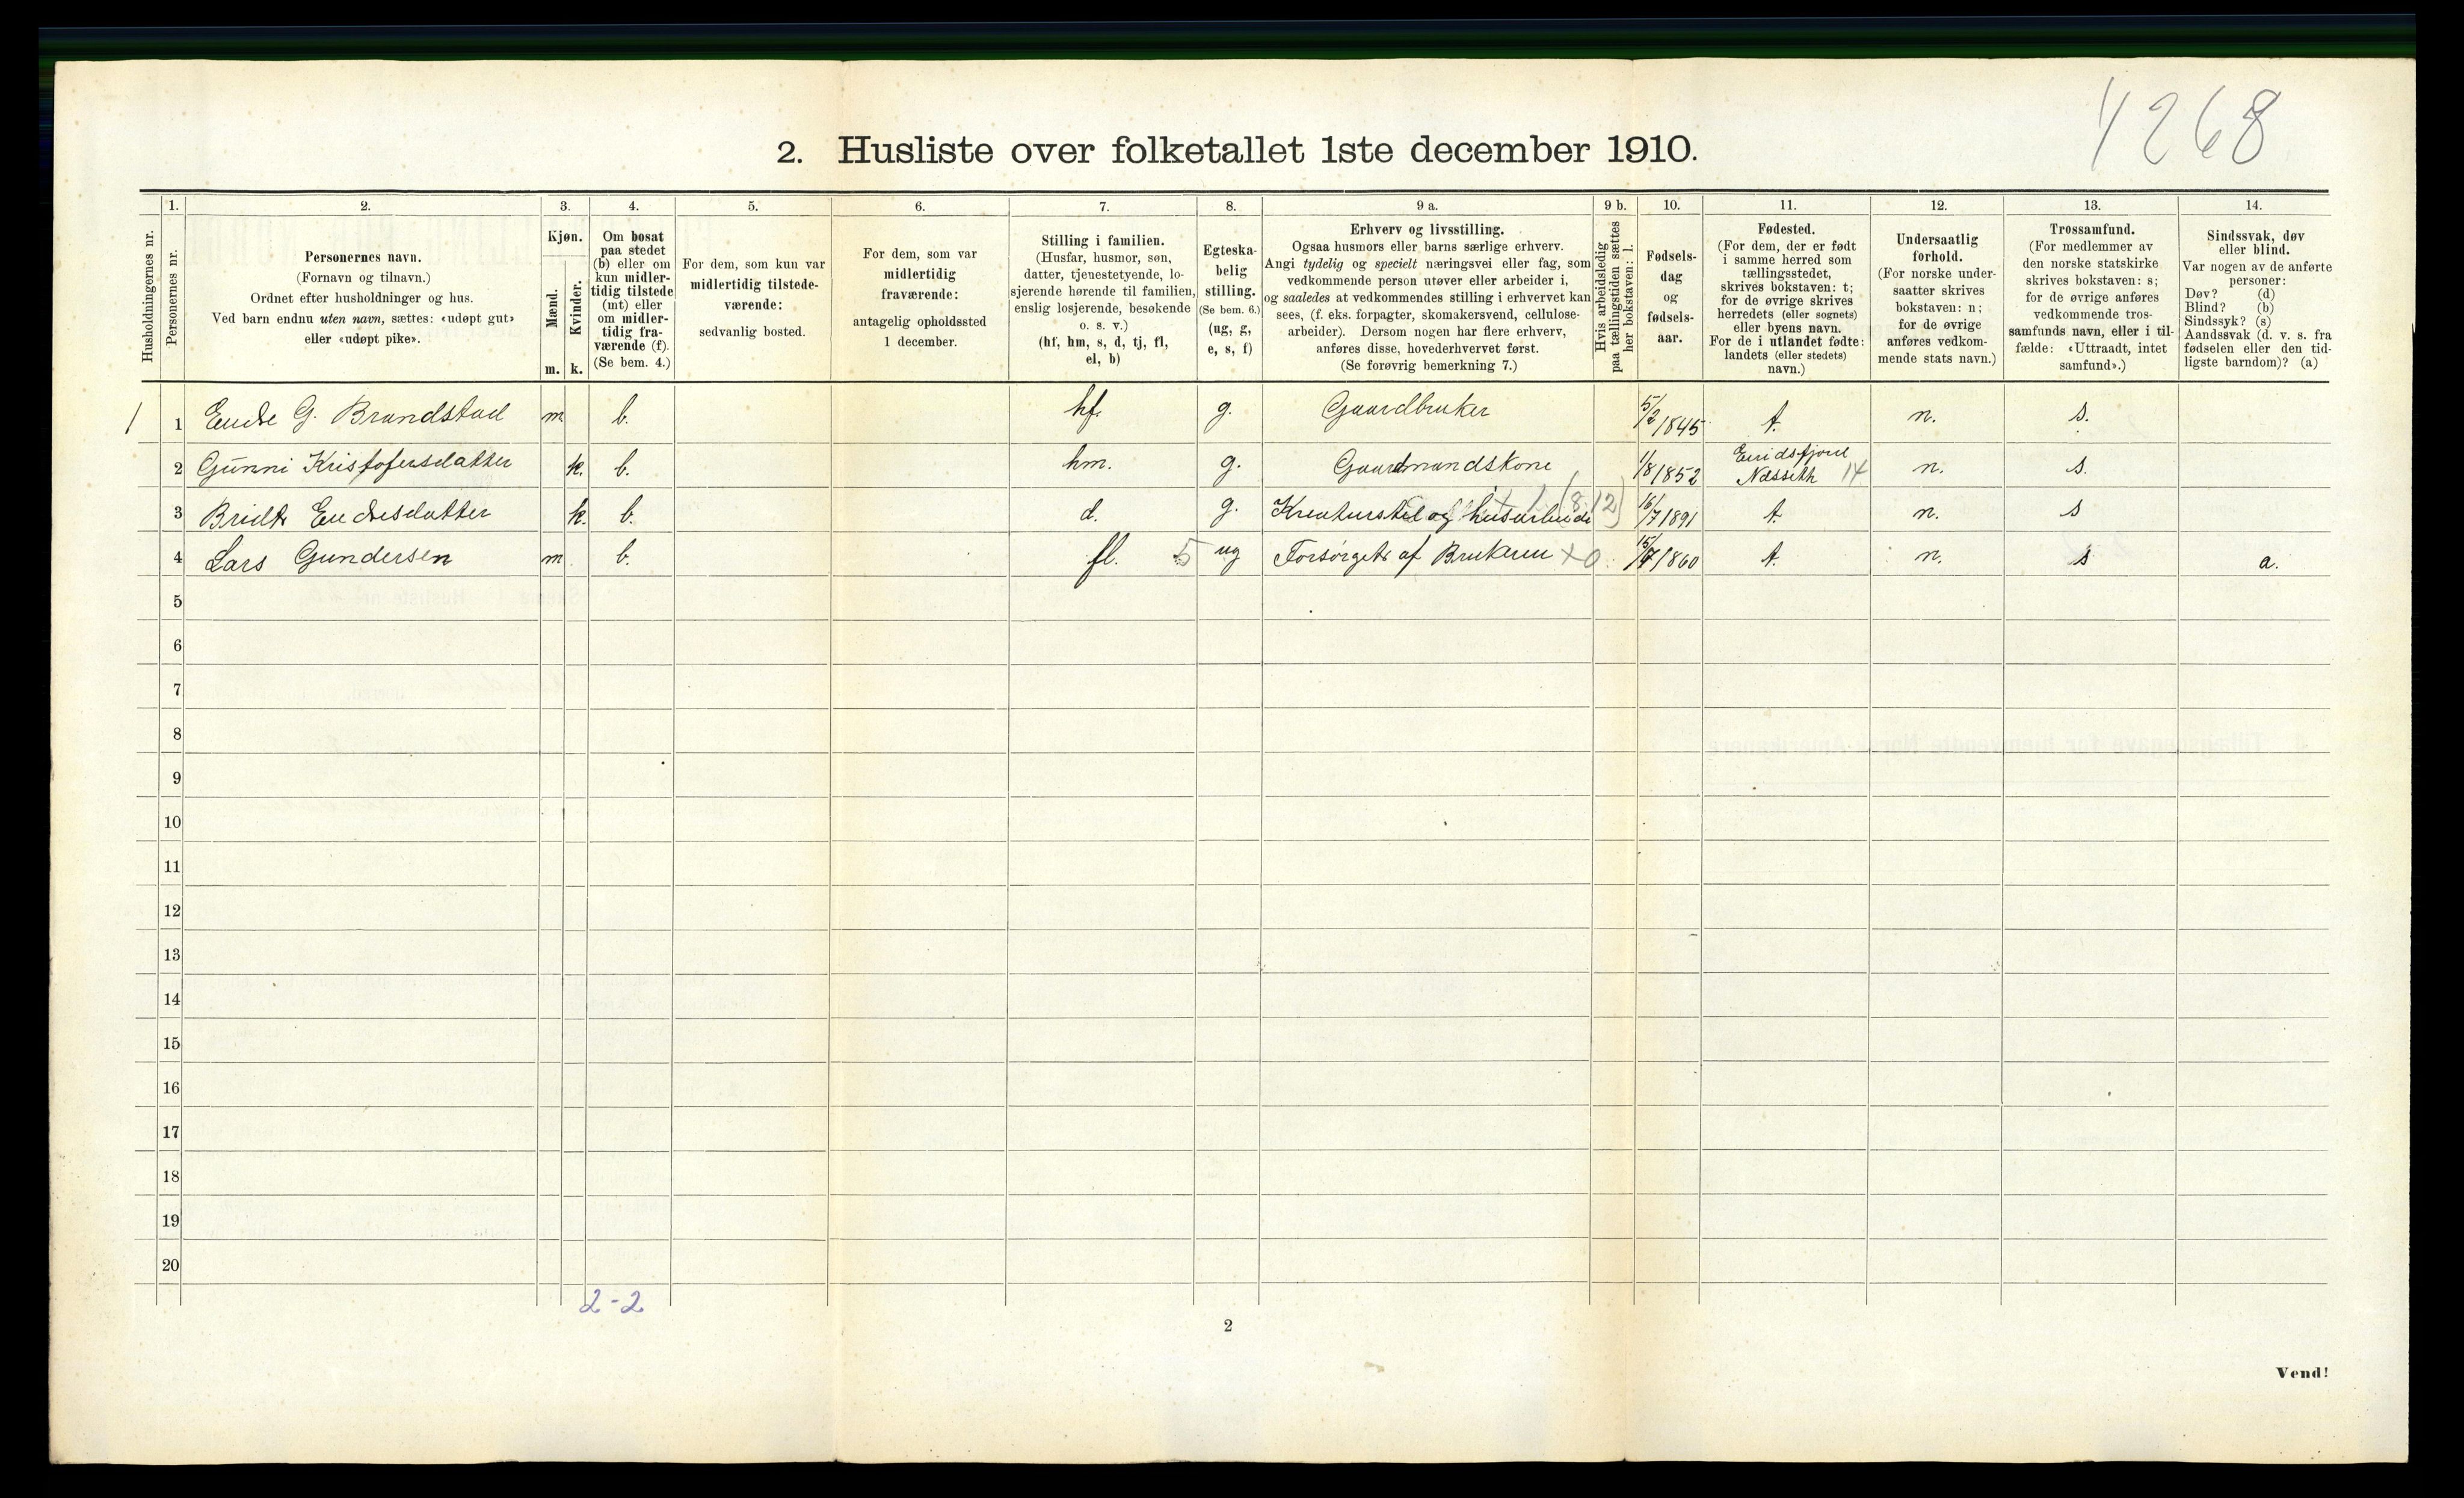 4268
2. Husliste over folketallet 1ste december 1910.
Husholdningernes nr.
1.
Personernes nr.
2.
Personernes navn.
(Fornavn og tilnavn.)
Ordnet efter husholdninger og hus.
Ved barn endnu uten navn, sættes: «udøpt gut»
eller «udøpt pike».
3.
Kjøn.
Mænd.
Kvinder.
m. k.
4.
Om bosat
paa stedet
(b) eller om
kun midler-
tidig tilstede
(mt) eller
om midler-
tidig fra-
værende (f).
(Se bem. 4.)
5.
For dem, som kun var
midlertidig tilstede-
værende:
sedvanlig bosted.
6.
For dem, som var
midlertidig
fraværende:
antagelig opholdssted
1 december.
7.
Stilling i familien.
(Husfar, husmor, søn,
datter, tjenestetyende, lo-
sjerende hørende til familien,
enslig losjerende, besøkende
o. s. v.)
(hf, hm, s, d, tj, fl,
el, b)
8.
Egteska-
belig
stilling.
(Se bem. 6.)
(ug, g,
e, s, f)
9 a.
Erhverv og livsstilling.
Ogsaa husmors eller barns særlige erhverv.
Angi tydelig og specielt næringsvei eller fag, som
vedkommende person utøver eller arbeider i,
og saaledes at vedkommendes stilling i erhvervet kan
sees, (f. eks. forpagter, skomakersvend, cellulose-
arbeider). Dersom nogen har flere erhverv,
anføres disse, hovederhvervet først.
(Se forøvrig bemerkning 7.)
9 b.
Hvis arbeidsledig
paa tællingstiden sættes
her bokstaven: l.
10.
Fødsels-
dag
og
fødsels-
aar.
11.
Fødested.
(For dem, der er født
i samme herred som
tællingsstedet,
skrives bokstaven: t;
for de øvrige skrives
herredets (eller sognets)
eller byens navn.
For de i utlandet fødte:
landets (eller stedets)
navn.)
12.
Undersaatlig
forhold.
(For norske under-
saatter skrives
bokstaven: n;
for de øvrige
anføres vedkom-
mende stats navn.)
13.
Trossamfund.
(For medlemmer av
den norske statskirke
skrives bokstaven: s;
for de øvrige anføres
vedkommende tros-
samfunds navn, eller i til-
fælde: «Uttraadt, intet
samfund».)
14.
Sindssvak, døv
eller blind.
Var nogen av de anførte
personer:
Døv? (d)
Blind? (b)
Sindssyk? (s)
Aandssvak (d. v. s. fra
fødselen eller den tid-
ligste barndom)? (a)
1 1 Endre G. Brandstad m b. hf. g. Gaardbruker 5/2 1845 t. n. s.
2 Gunni Kristofersdatter k. b. hm. g. Gaardmandskone 1/8 1852 n. s.
3 Endresdatter k. b. d. g. Kreaturstel og husarbeide 16/7 1891 t. n. s
4 Lars Gundersen m b. fl. 5 ug Forsørget af x0 1860 t. n. s a.
5
6
7
8
9
10
11
12
13
14
15
16
17
18
19
20
2-2
2
Vend!